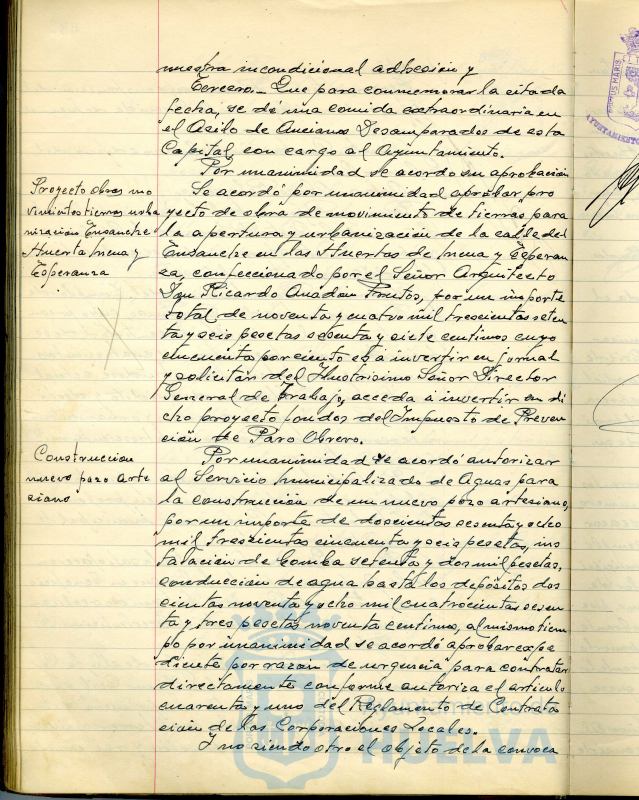 nuestra incondicional adhesión y
Tercero.- Que para conmemorar la citada
fecha, se dé una comida extraordinaria en
el Asilo de Ancianos Desamparados de esta
Capital, con cargo al Ayuntamiento.
Por unanimidad se acordo su aprobación
Proyecto obras mo
vimientos tierras urba
nización Ensanche
Huerta Mena y
Esperanza
Se acordó por unanimidad aprobar "pro
yecto de obra de movimiento de tierras" para
la apertura y urbanización de la calle del
Ensanche en las Huertas de Mena y Esperan
za, confeccionado por el Señor Arquitecto
Don Ricardo Anadón Frutos, por un importe
total de noventa y cuatro mil trescientas seten
ta y seis pesetas sesenta y siete centimos cuyo
cincuenta por ciento es a invertir en jornal
y solicitar del Ilustrisimo Señor Director
General de Trabajo, acceda a invertir en di
cho proyecto fondos del Impuesto de Preven
ción de Paro Obrero.
Construccion
nuevo pozo arte
siano
Por unanimidad se acordó autorizar
al Servicio Municipalizado de Aguas para
la construcción de un nuevo pozo artesiano,
por un importe de doscientas sesenta y ocho
mil trescientas cincuenta y seis pesetas, ins
talación de bomba setenta y dos mil pesetas,
conducción de agua hasta los depósitos dos
cientas noventa y ocho mil cuatrocientas sesen
ta y tres pesetas noventa centimos, al mismo tiem
po por unanimidad se acordó aprobar expe
diente "por razón de urgencia" para contratar
directamente conforme autoriza el articulo
cuarenta y uno del Reglamento de Contrata
ción de las Corporaciones Locales.
Y no siendo otro el objeto de la convoca
HUELVA
PORTUS MARIS
AYUNTAMIENTO